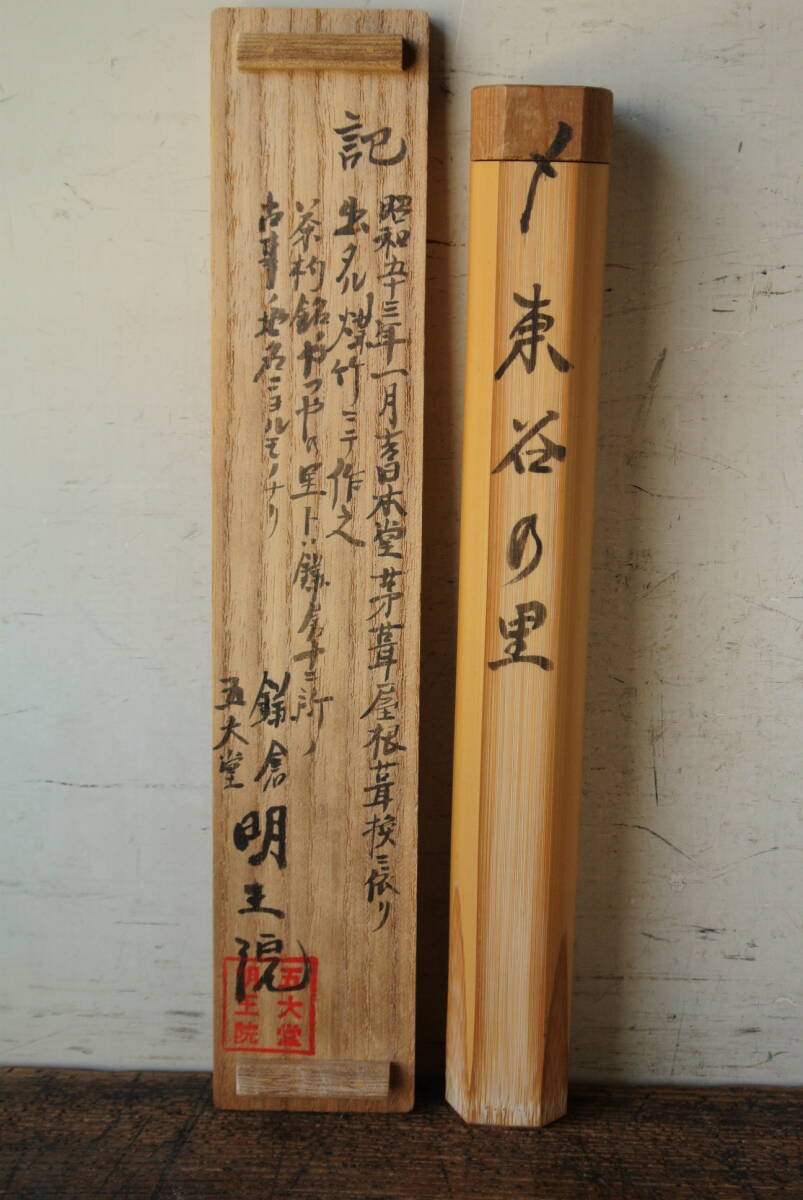 記
昭和五十三年一月吉日本堂茅葺屋根葺換ニ依リ
出タル煤竹ニテ作之
茶杓銘やつやの里トハ鎌倉十二所ノ
古事ノ地名ニヨルモノナリ
鎌倉
五大堂
明王院
五大堂
明王院
〆
東谷の里